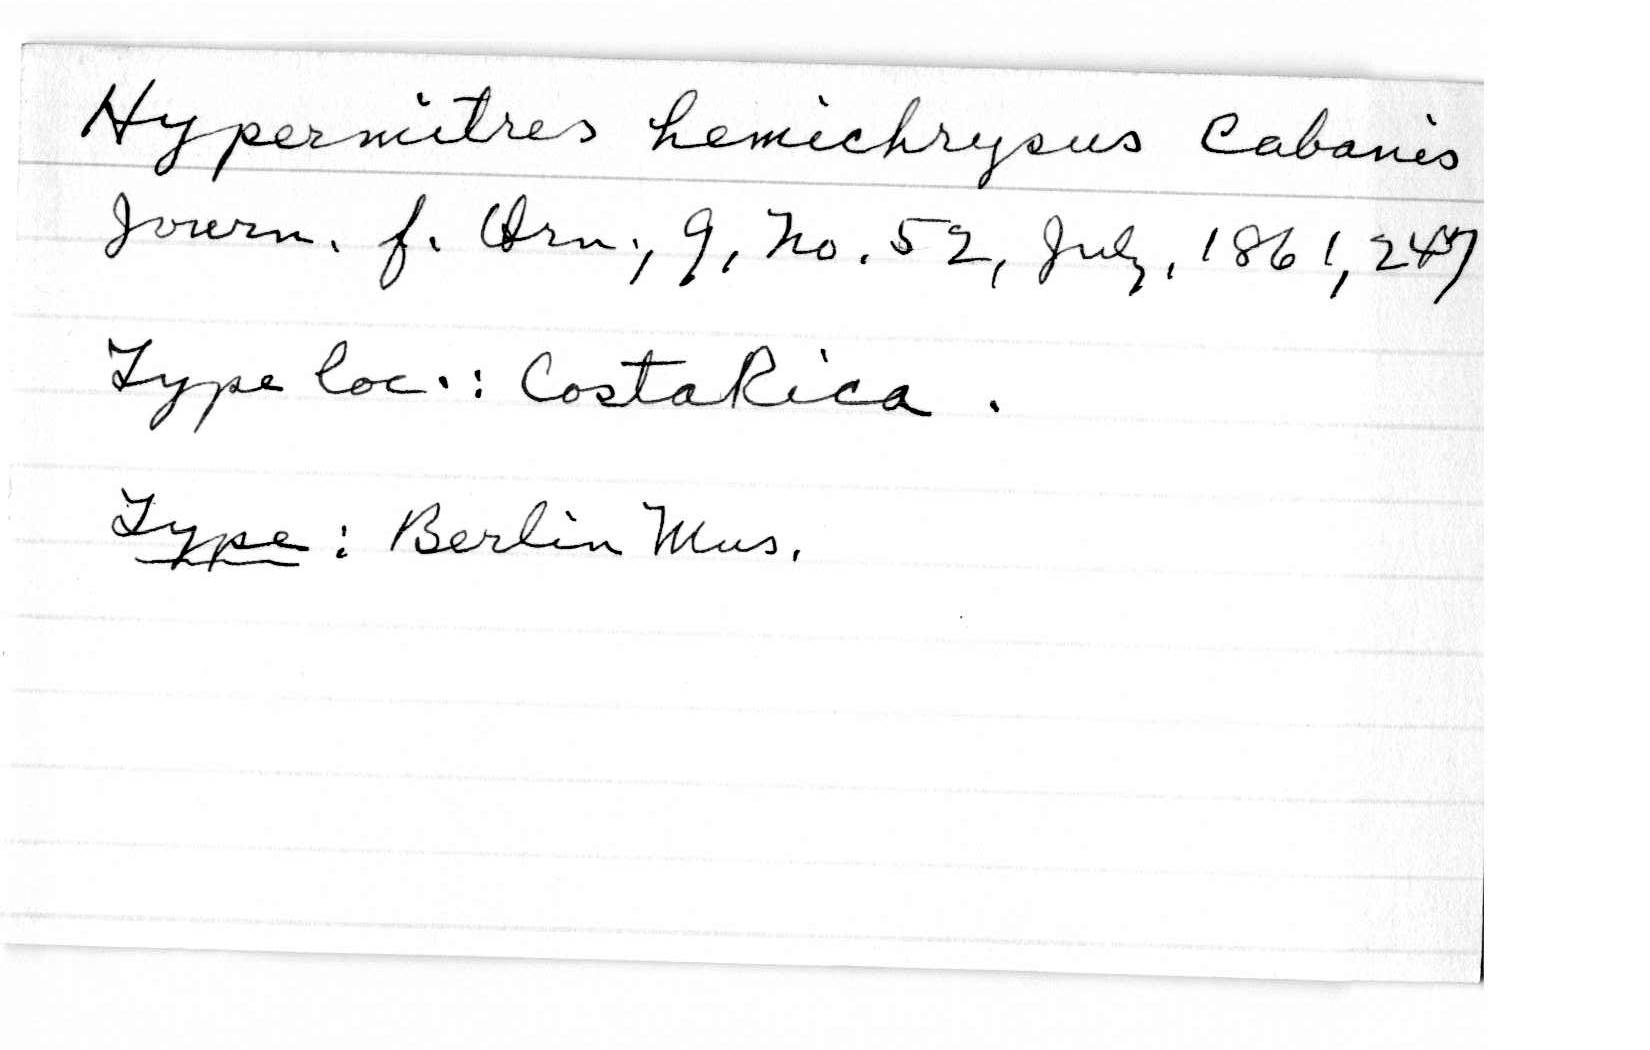 Hypermitres hemichrysus Cabanis
Journ. f. Orn., 9, No. 52, July, 1861, 247
Type loc.: Costa Rica.
Type: Berlin Mus.